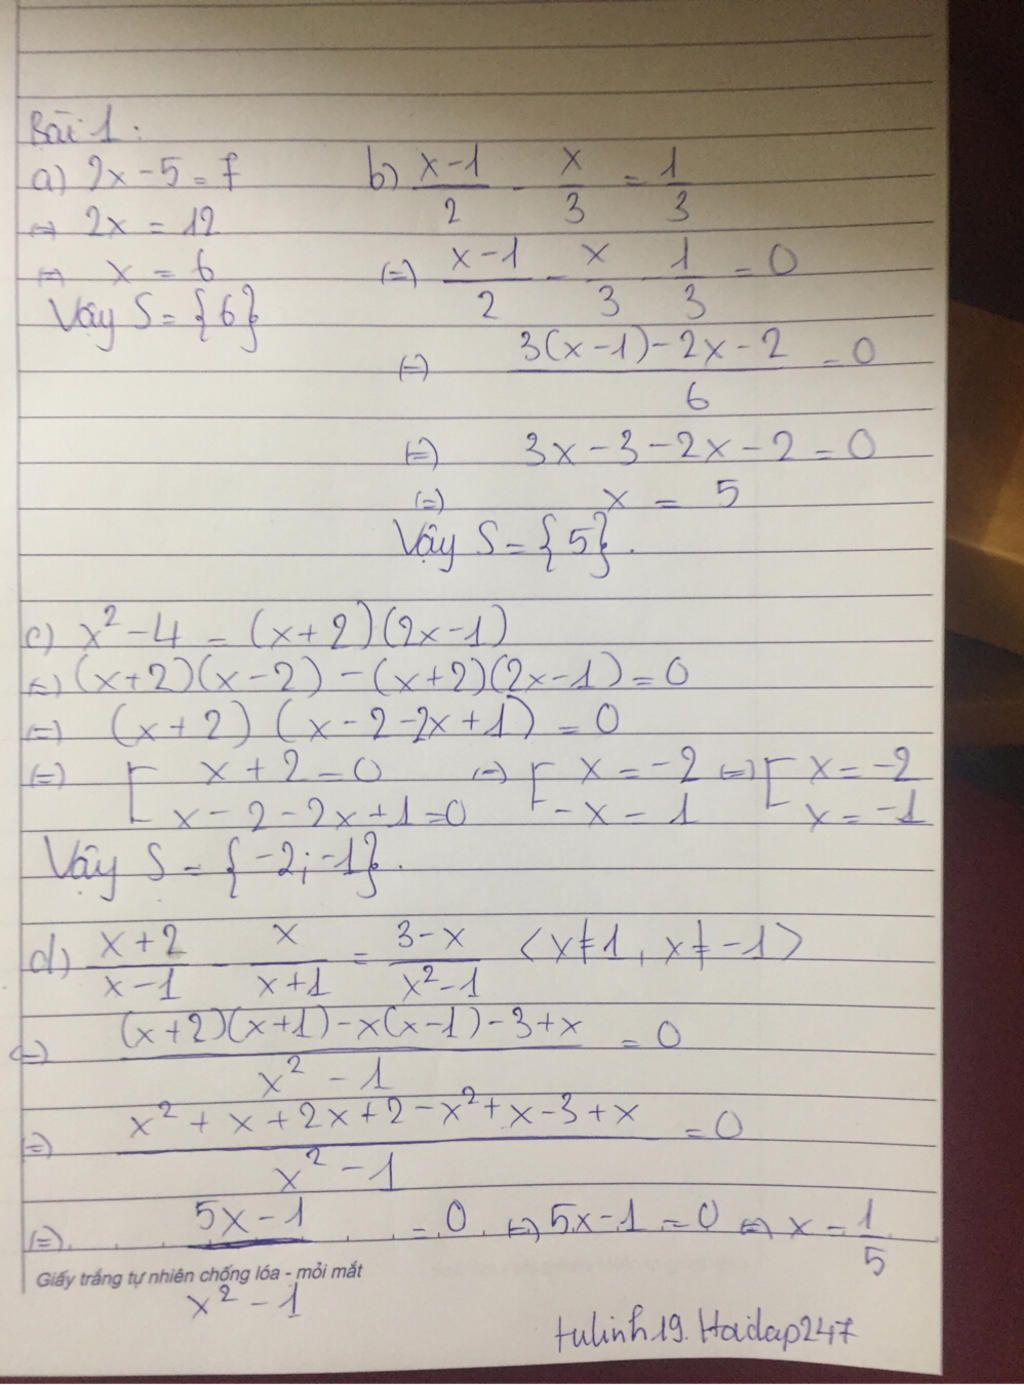 Bài 1:
a) 2x - 5 = 7
⇔ 2x = 12
⇔ x = 6
Vậy S = {6}
b) (x-1)/2 - x/3 = 1/3
(=) (x-1)/2 - x/3 - 1/3 = 0
(=) (3(x-1) - 2x - 2)/6 = 0
(=) 3x - 3 - 2x - 2 = 0
(=) x = 5
Vậy S = {5}.
c) x² - 4 = (x+2)(2x-1)
(=) (x+2)(x-2) - (x+2)(2x-1) = 0
(=) (x+2) (x-2-2x+1) = 0
(=) [ x+2=0 ; x-2-2x+1=0 (=) [ x=-2 ; -x=1 (=) [ x=-2 ; x=-1
Vậy S = {-2; -1}.
d) (x+2)/(x-1) - x/(x+1) = (3-x)/(x²-1) <x≠1, x≠-1>
(=) ((x+2)(x+1) - x(x-1) - 3+x)/(x²-1) = 0
(=) (x² + x + 2x + 2 - x² + x - 3 + x)/(x²-1) = 0
(=) (5x-1)/(x²-1) = 0 (=) 5x-1 = 0 (=) x = 1/5
Giấy trắng tự nhiên chống lóa - mỏi mắt
tulinh19. Hoidap247